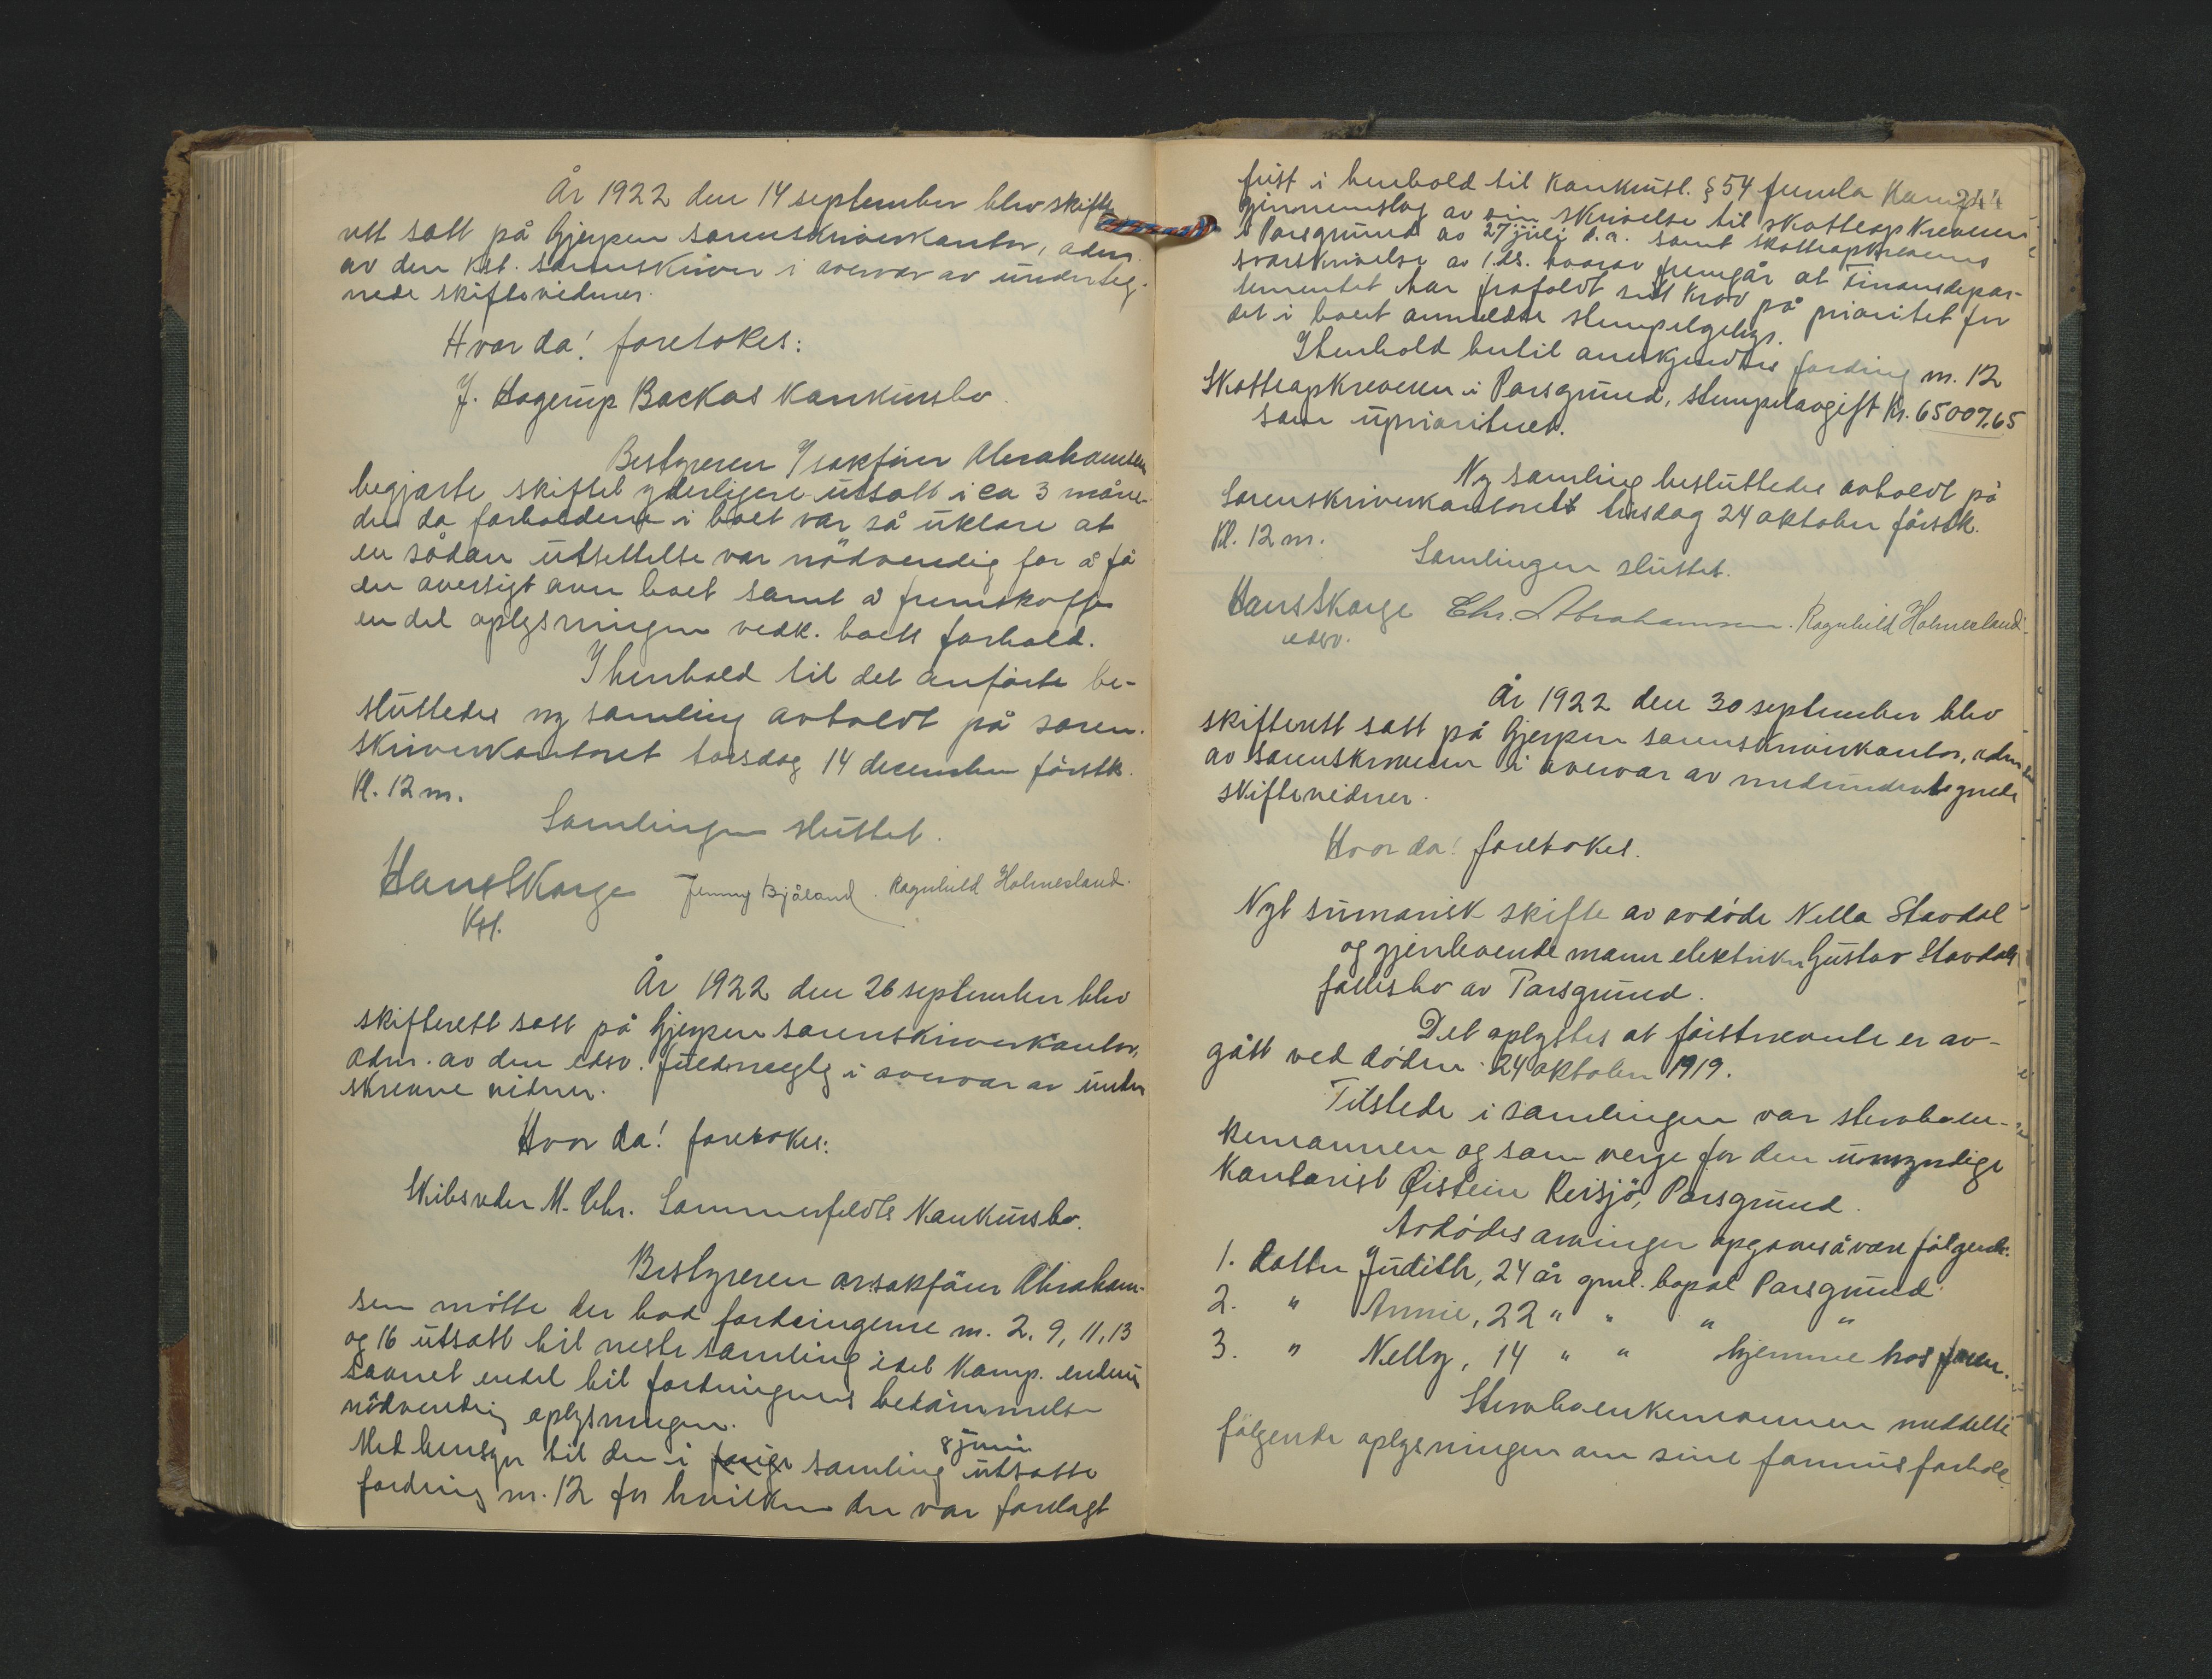 År 1922 den 14 september blev skifte
rett satt på Gjerpen sorenskriverkontor, adm.
av den kst. sorenskriver i overvær av underteg-
nede skiftevidner.
Hvor da! foretokes:
J. Hagerup Backas konkursbo.
Bestyreren O saksfører Abrahamsen
begjærte skiftet yderligere utsatt i ca 3 måne-
der da forholdene i boet var så uklare at
en sådan utsettelse var nödvendig for å få
en oversigt over boet samt å fremskaffe
en del oplysninger vedk. boets forhold.
I henhold til det anförte be-
sluttedes ny samling avholdt på soren-
skriverkontoret torsdag 14 december förstk.
Kl. 12 m.
Samlingen sluttet.
Hans Skorge Jenny Bjåland. Ragnhild Holmesland.
Kst.
År 1922 den 26 september blev
skifterett satt på Gjerpen sorenskriverkontor,
adm. av den edsv. fuldmegtg i overvær av under
skrevne vidner.
Hvor da! foretokes:
Skibsreder M. Chr. Sommerfeldts Konkursbo.
Bestyreren orsakfører Abraham-
sen mötte der bad fordringerne nr. 2, 9, 11, 13
og 16 utsatt til neste samling idet Komp. endnu
savnet endel til fordringenes bedömmelse
nödvendig oplysninger.
8 juni
Med hensyn til den i forige samling utsatte
fordring nr. 12 for hvilken der var forelagt
244
frist i henhold til konkursl. § 54 femla Kom.
gjennemslag av sin skrivelse til skatteopkreveren
i Porsgrund av 27 juli d.a. samt skatteopkreverens
svarskrivelse av 1. ds. hvorav fremgår at Finansdepar-
tementet har frafaldt sitt krav på prioritet for
det i boet anmeldte stempelgebyr.
I henhold hertil anerkjendtes fordring nr. 12
Skatteopkreveren i Porsgrund, stempelavgift kr. 65007,65
som uprioritert.
Ny samling besluttedes avholdt på
Sorenskriverkontoret tirsdag 24 oktober förstk.
Kl. 12 m.
Samlingen sluttet.
Hans Skorge Chr. Abrahamsen. Ragnhild Holmesland.
edsv.
År 1922 den 30 september blev
skifterett satt på Gjerpen sorenskriverkontor, adm
av sorenskriveren i overvær av medundertegnede
skiftevidner.
Hvor da! foretokes.
Nyt sumarisk skifte av avdöde Nella Stavdal
og gjenlevende mann elektriker Gustav Stavdals
fællesbo av Porsgrund.
Det oplystes at förstnevnte er av-
gått ved döden 24 oktober 1919.
Tilstede i samlingen var stervboen-
kemannen og som verge for den umyndige
Kontorist Øistein Reisjö, Porsgrund.
Avdödes arvinger opgaves å være fölgende:
1. Datter Judith, 24 år gml. bopæl Porsgrund
2. " Annie, 22 " " " "
3. " Nelly, 14 " " hjemme hos faren.
Stervboenkemannen meddelte
fölgende oplysninger om sine formuesforhold.